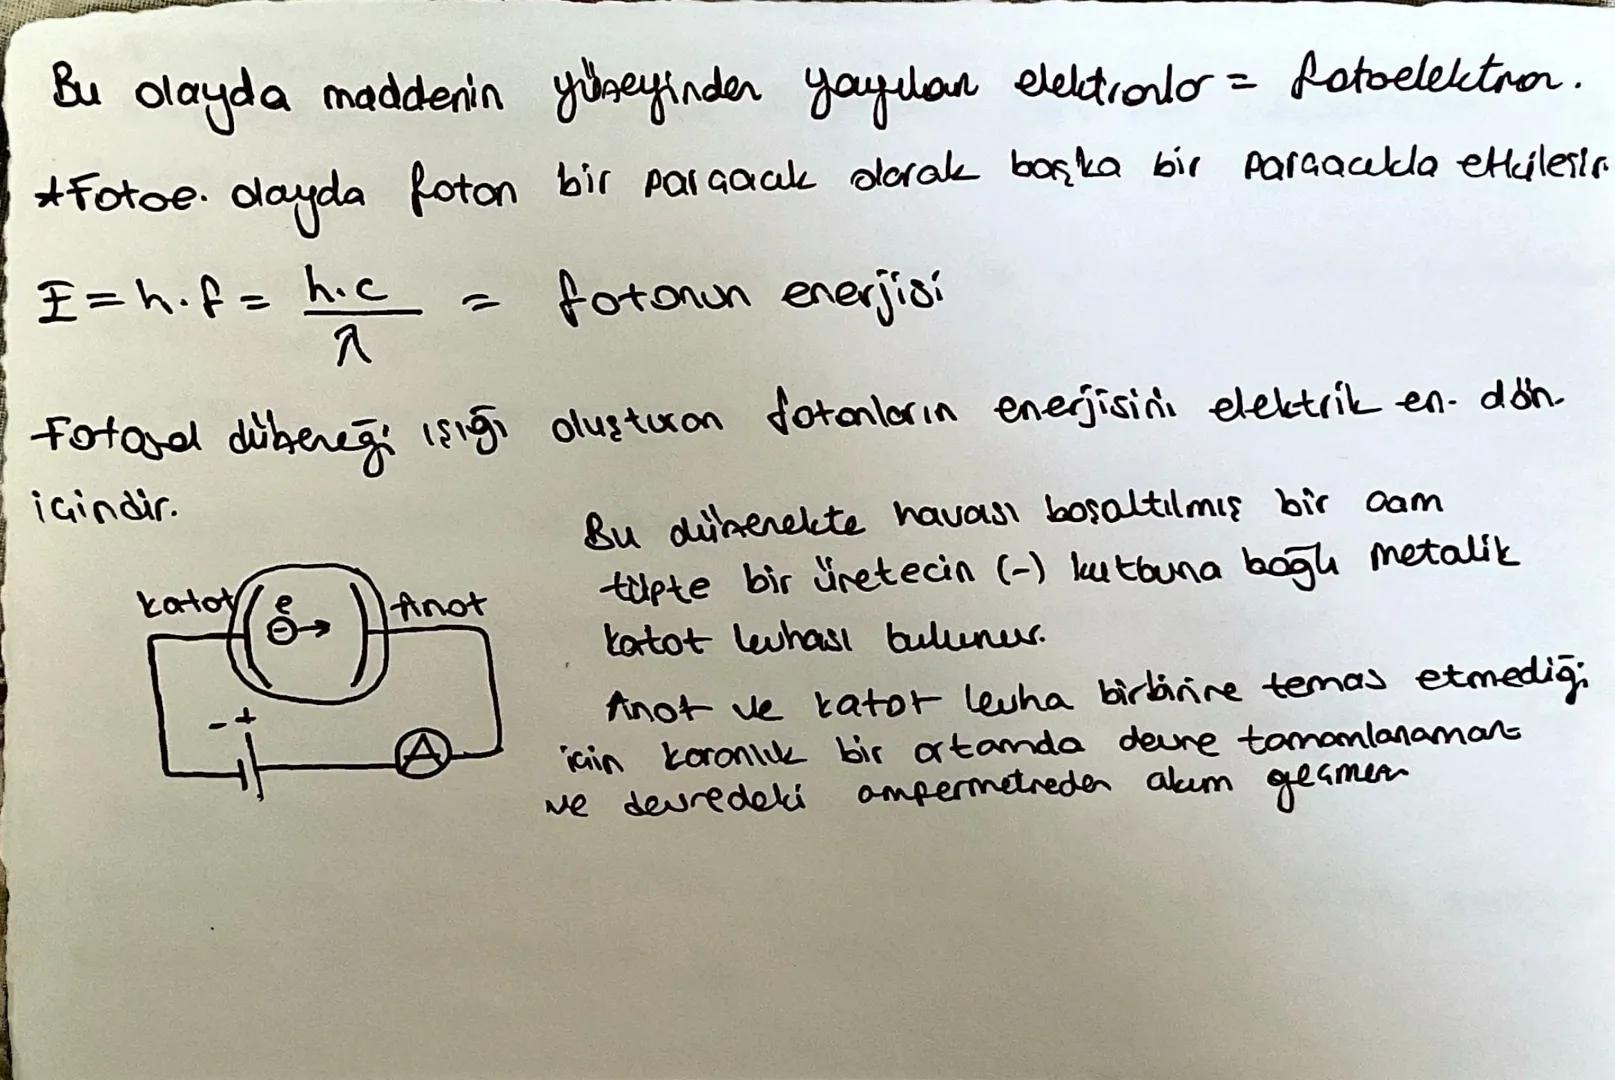 Bu olayda maddenin yüzeyinden yayılan elektronlar = fotoelektron.
*Fotoe. olayda foton bir parçacık olarak başka bir parçacıkla etkileşir.
E = h.f = h.c / λ = fotonun enerjisi
Fotosel düzeneği ışığı oluşturan fotonların enerjisini elektrik en. dön.
içindir.
Bu düzenekte havası boşaltılmış bir cam
tüpte bir üretecin (-) kutbuna bağlı metalik
katot levhası bulunur.
katot e Anot
Anot ve katot levha birbirine temas etmediği
için karanlık bir ortamda devre tamamlanamaz
ve devredeki ampermetreden akım geçmez
- +
A